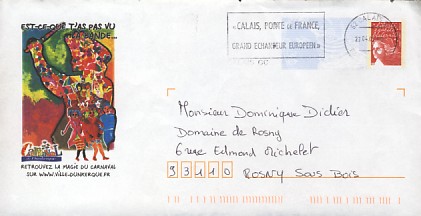 EST-CE-QUE T'AS PAS VU
BANDE...
«CALAIS, PORTE DE FRANCE,
GRAND ECHANGEUR EUROPEEN»
Monsieur Dominique Didier
Domaine de Rosny
6 rue Edmond Michelet
93110 ROSNY SOUS BOIS
RETROUVEZ LA MAGIE DU CARNAVAL
SUR WWW.VILLE-DUNKERQUE.FR